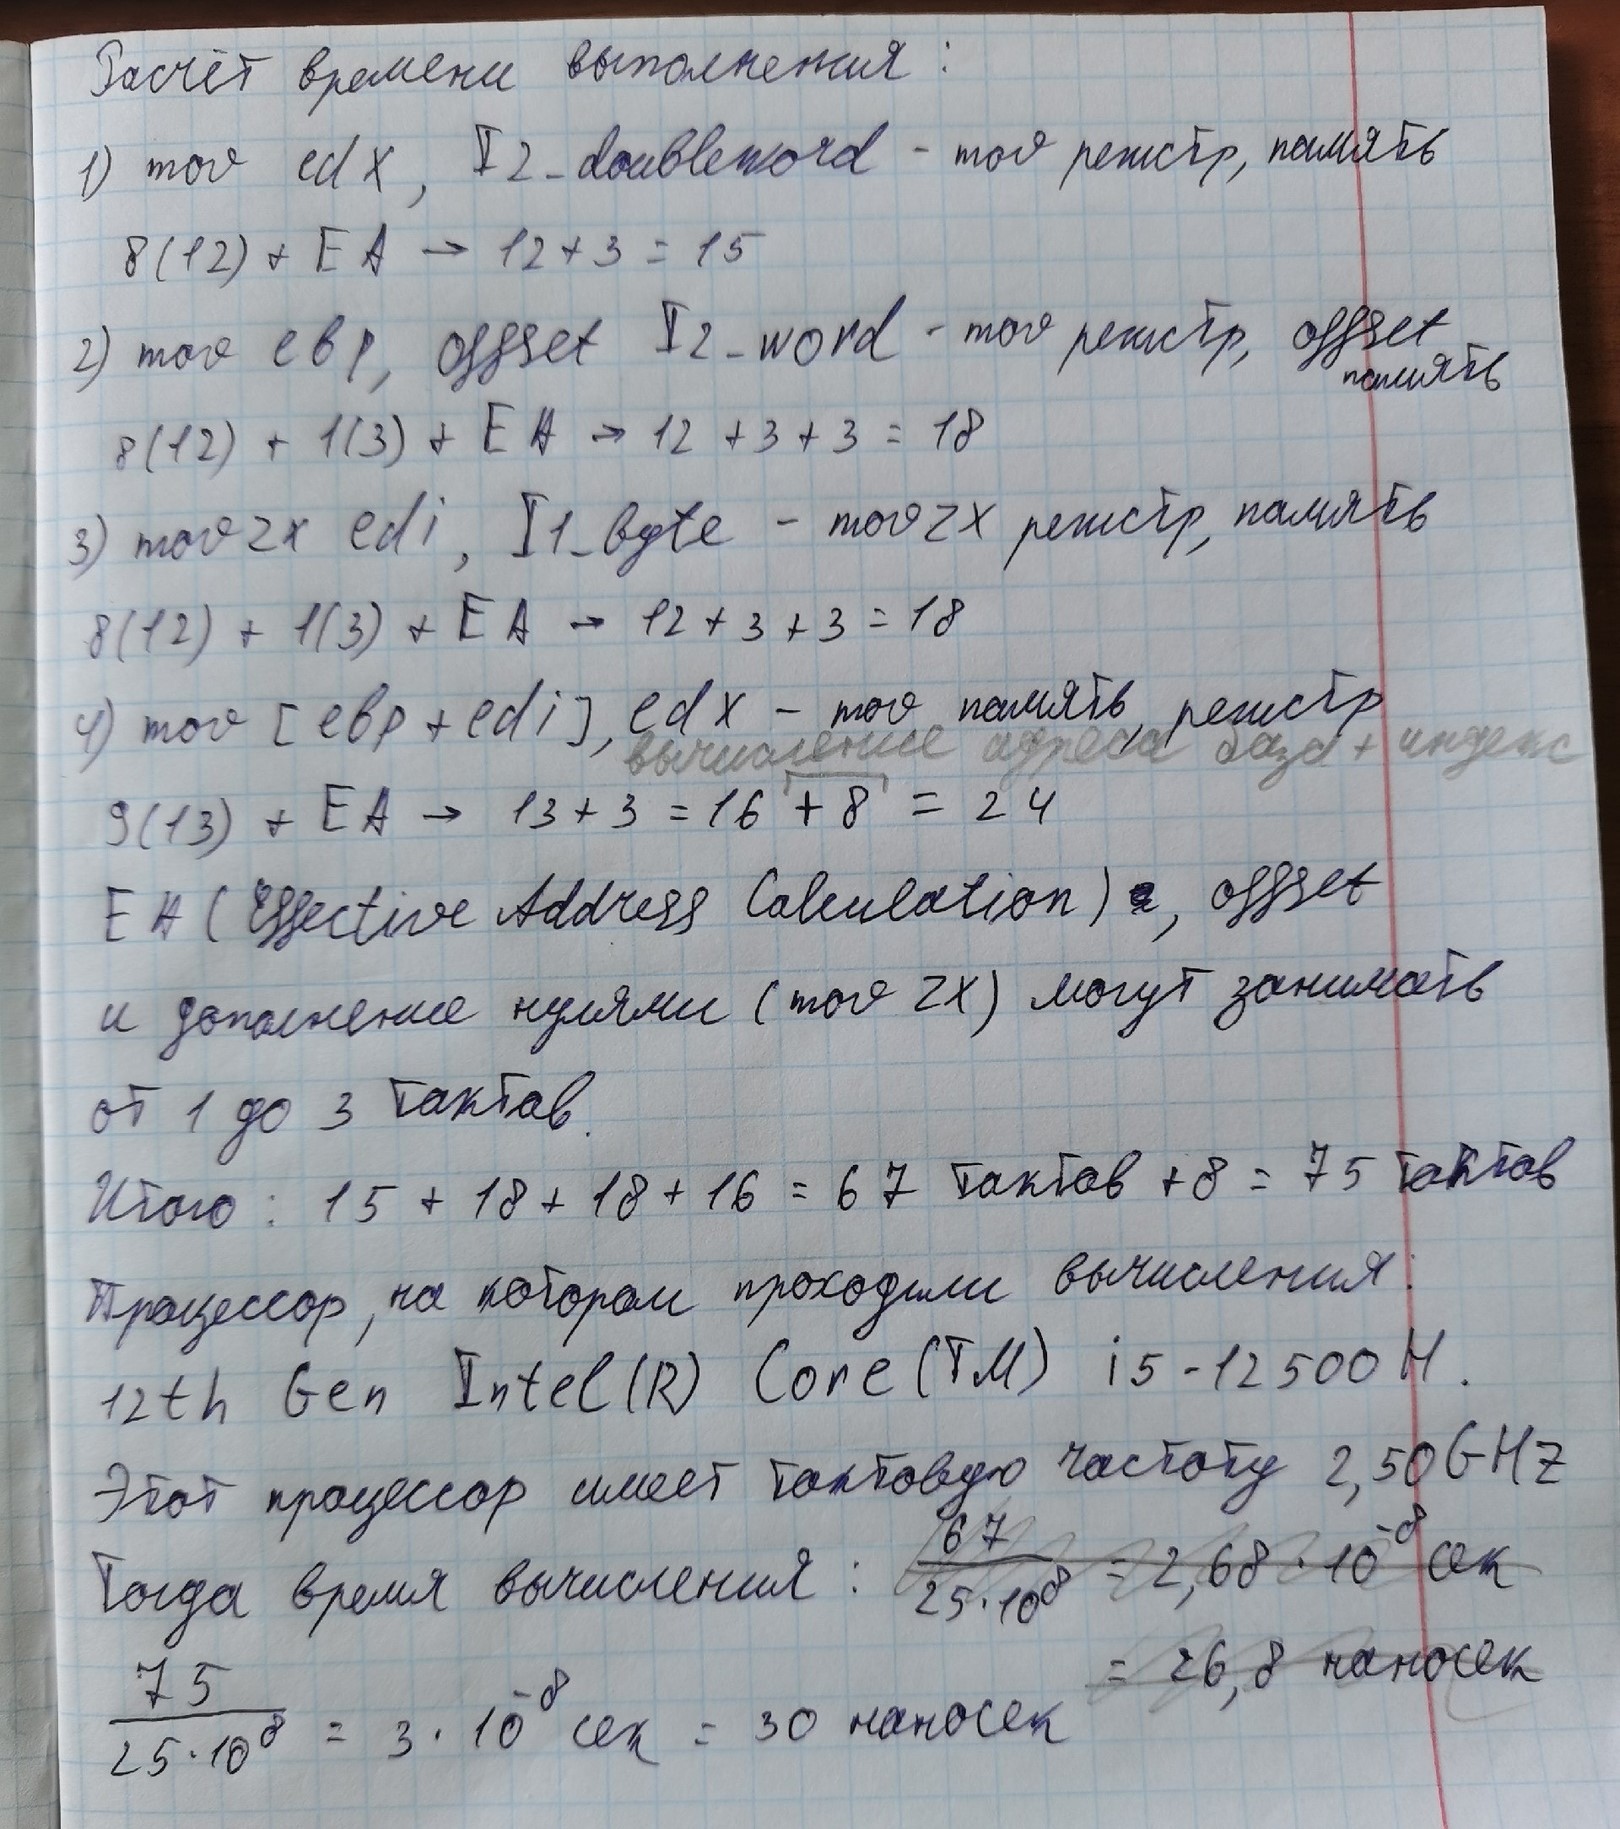 Расчёт времени выполнения:
1) mov edx, I2_doubleword - mov регистр, память
8(12) + EA → 12 + 3 = 15
2) mov ebp, offset I2_word - mov регистр, offset
память
8(12) + 1(3) + EA → 12 + 3 + 3 = 18
3) movzx edi, I1_byte - movzx регистр, память
8(12) + 1(3) + EA → 12 + 3 + 3 = 18
4) mov [ebp + edi], edx - mov память, регистр
вычисление адреса база + индекс
9(13) + EA → 13 + 3 = 16 + 8 = 24
EA (Effective Address Calculation), offset
и дополнение нулями (mov zx) могут занимать
от 1 до 3 тактов.
Итого: 15 + 18 + 18 + 16 = 67 тактов + 8 = 75 тактов
Процессор, на котором проходили вычисления:
12th Gen Intel(R) Core(TM) i5-12500H.
Этот процессор имеет тактовую частоту 2,50GHz
Тогда время вычисления: 67 / 25·10^8 = 2,68·10^-8 сек
= 26,8 наносек
75 / 25·10^8 = 3·10^-8 сек = 30 наносек